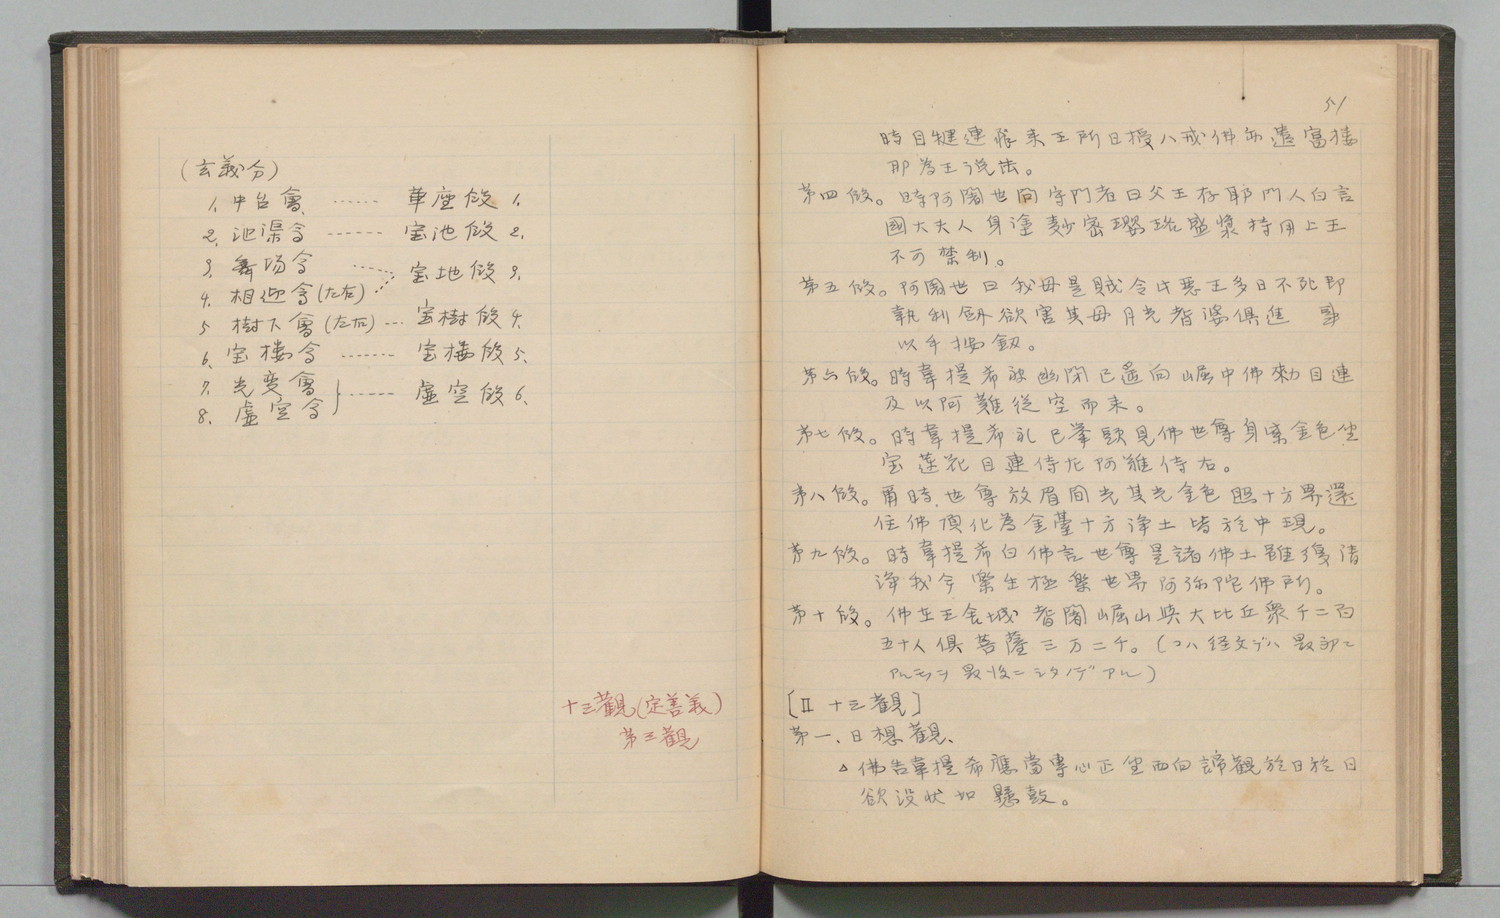 (玄義分)
1. 中台會 …… 華座段 1.
2. 池渠會 …… 宝池段 2.
3. 舞场會 …… 宝地段 3.
4. 相迎會(左右)
5 樹下會(左右) … 宝樹段 4.
6. 宝楼會 …… 宝楼段 5.
7. 光変會 …… 虚空段 6.
8. 虚空會
十三觀(定善義)
第三觀
51
時目揵連飛来王所日授八戒佛亦遣富楼
即為王说法。
第四段。時阿闍世问守門者曰父王存耶門人白言
國大夫人身塗麨密瓔珞盛漿持用上王
不可禁制。
第五段。阿闍世曰我母是賊令此惡王多日不死即
執利剱欲害其母月光耆婆俱進
以手按劔。
第六段。時韋提希被幽閉已遙向崛中佛勅目連
及以阿難従空而来。
第七段。時韋提希礼已挙頭見佛世尊身紫金色坐
宝蓮花目連侍左阿難侍右。
第八段。爾時世尊放眉间光其光金色照十方界還
住佛頂化為金臺十方浄土皆於中現。
第九段。時韋提希白佛言世尊是諸佛土雖復清
浄我今楽生極楽世界阿弥陀佛所。
第十段。佛在王舍城耆闍崛山與大比丘衆千二百
五十人俱菩薩三万二千。(コハ経文デハ最初ニ
アルモヲ最後ニシタノデアル)
[II 十三觀]
第一、日想觀、
△佛告韋提希應當専心正坐西向諦觀於日於日
欲没状如懸鼓。